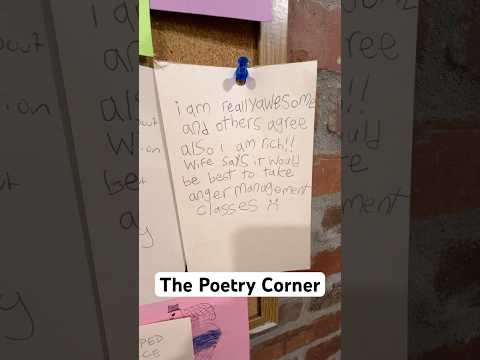 i am reallyawesome
and others agree
also i am rich!!
wife says it would
be best to take
anger management
classes
The Poetry Corner